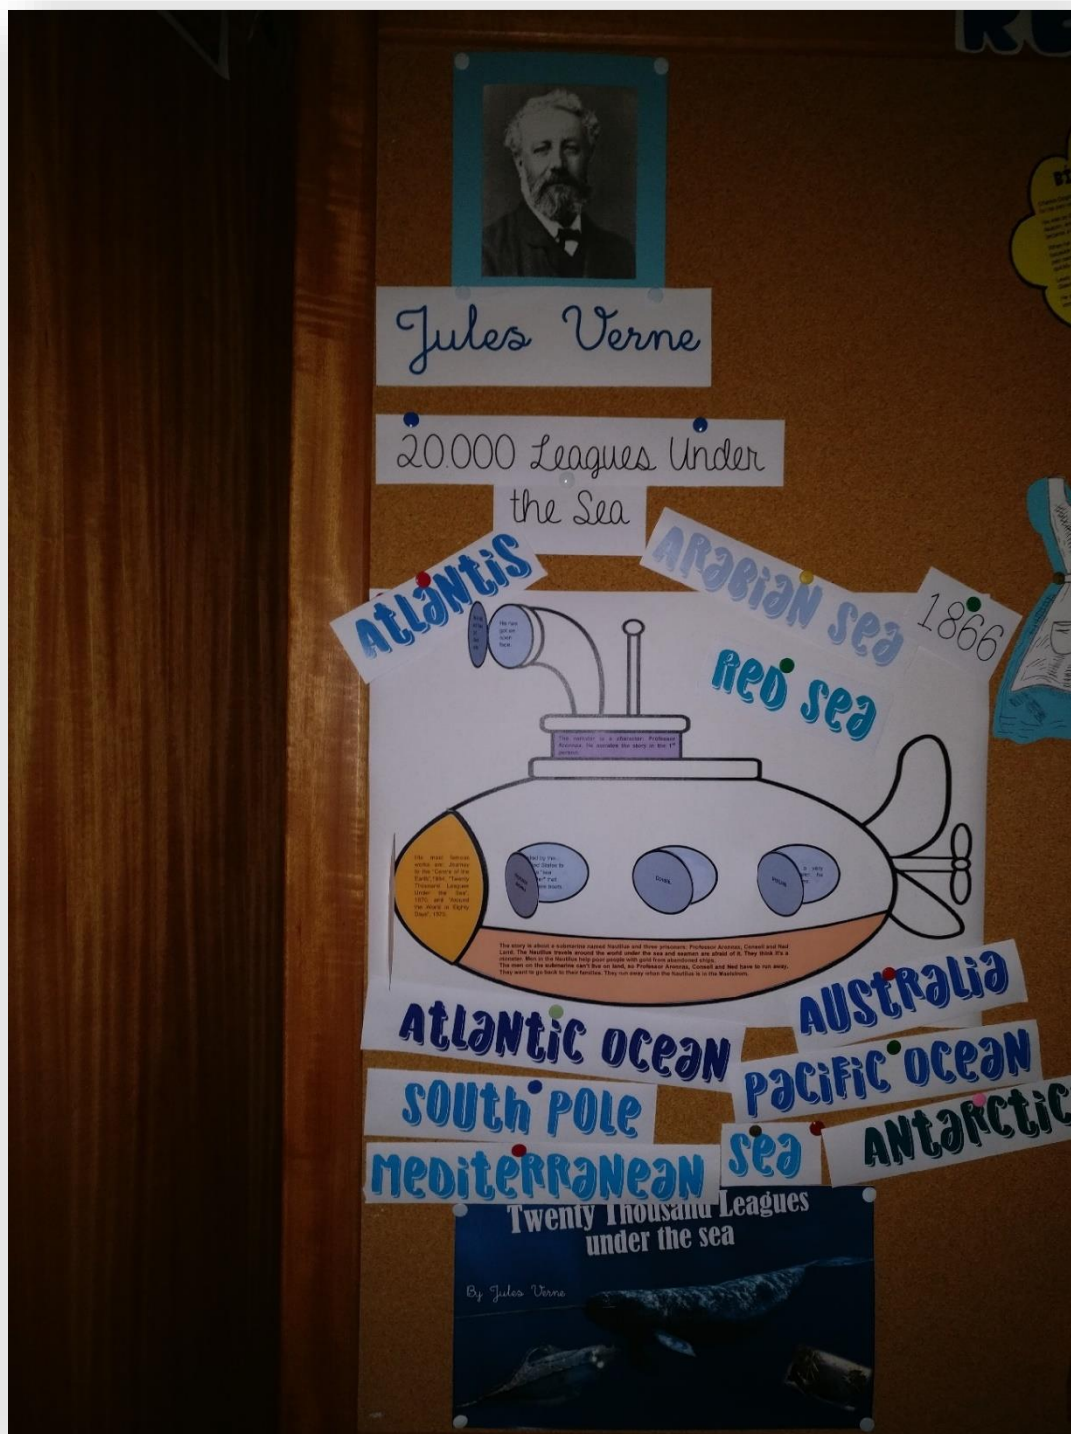 RE
Jules Verne
20.000 Leagues Under
the Sea
ATLANTIS
ARABIAN SEA
1866
RED SEA
He has
got an
open
face.
The narrator is a character: Professor
Aronnax. He narrates the story in the 1st
person.
His most famous
works are: Journey
to the "Centre of the
Earth",1864, "Twenty
Thousand Leagues
Under the Sea",
1870, and "Around
the World in Eighty
Days", 1873.
The story is about a submarine named Nautilus and three prisoners: Professor Aronnax, Conseil and Ned
Land. The Nautilus travels around the world under the sea and seamen are afraid of it. They think it's a
monster. Men in the Nautilus help poor people with gold from abandoned ships.
The men on the submarine can't live on land, so Professor Aronnax, Conseil and Ned have to run away.
They want to go back to their families. They run away when the Nautilus is in the Maelstrom.
ATLANTIC OCEAN
AUSTRALIA
SOUTH POLE
PACIFIC OCEAN
MEDITERRANEAN SEA
ANTARCTIC
Twenty Thousand Leagues
under the sea
By Jules Verne